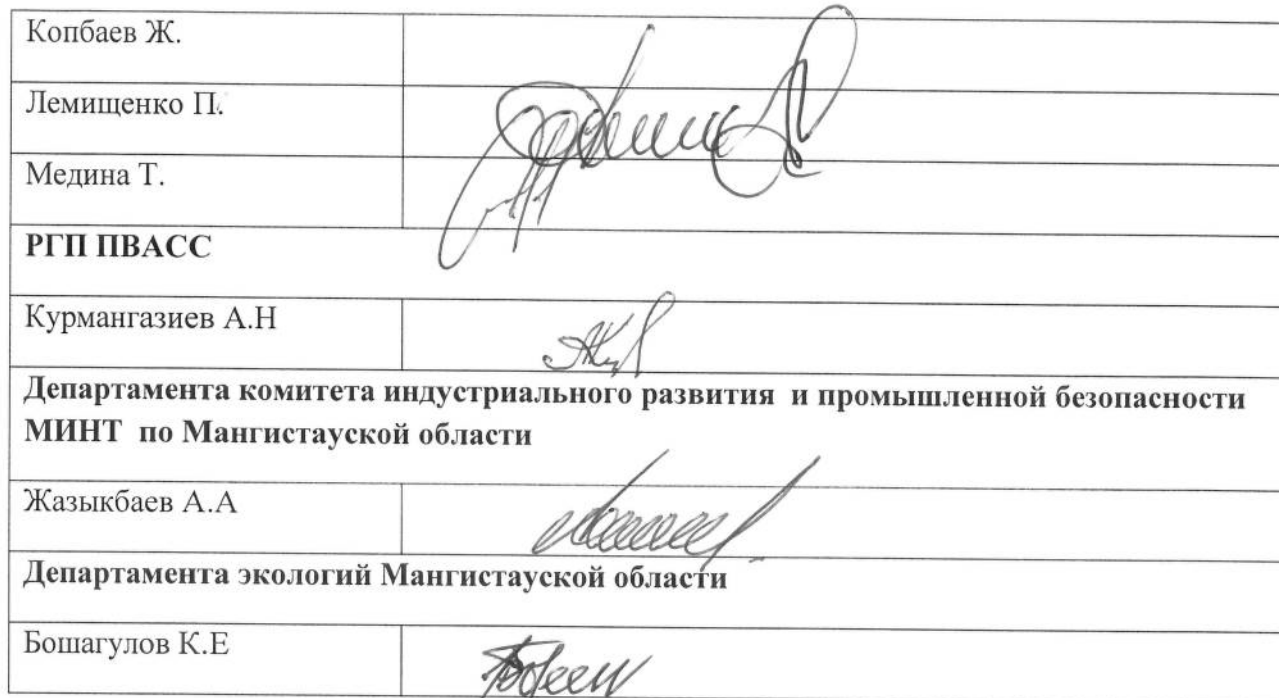 Копбаев Ж.
Лемищенко П.
Медина Т.
РГП ПВАСС
Курмангазиев А.Н
Департамента комитета индустриального развития и промышленной безопасности
МИНТ по Мангистауской области
Жазыкбаев А.А
Департамента экологий Мангистауской области
Бошагулов К.Е